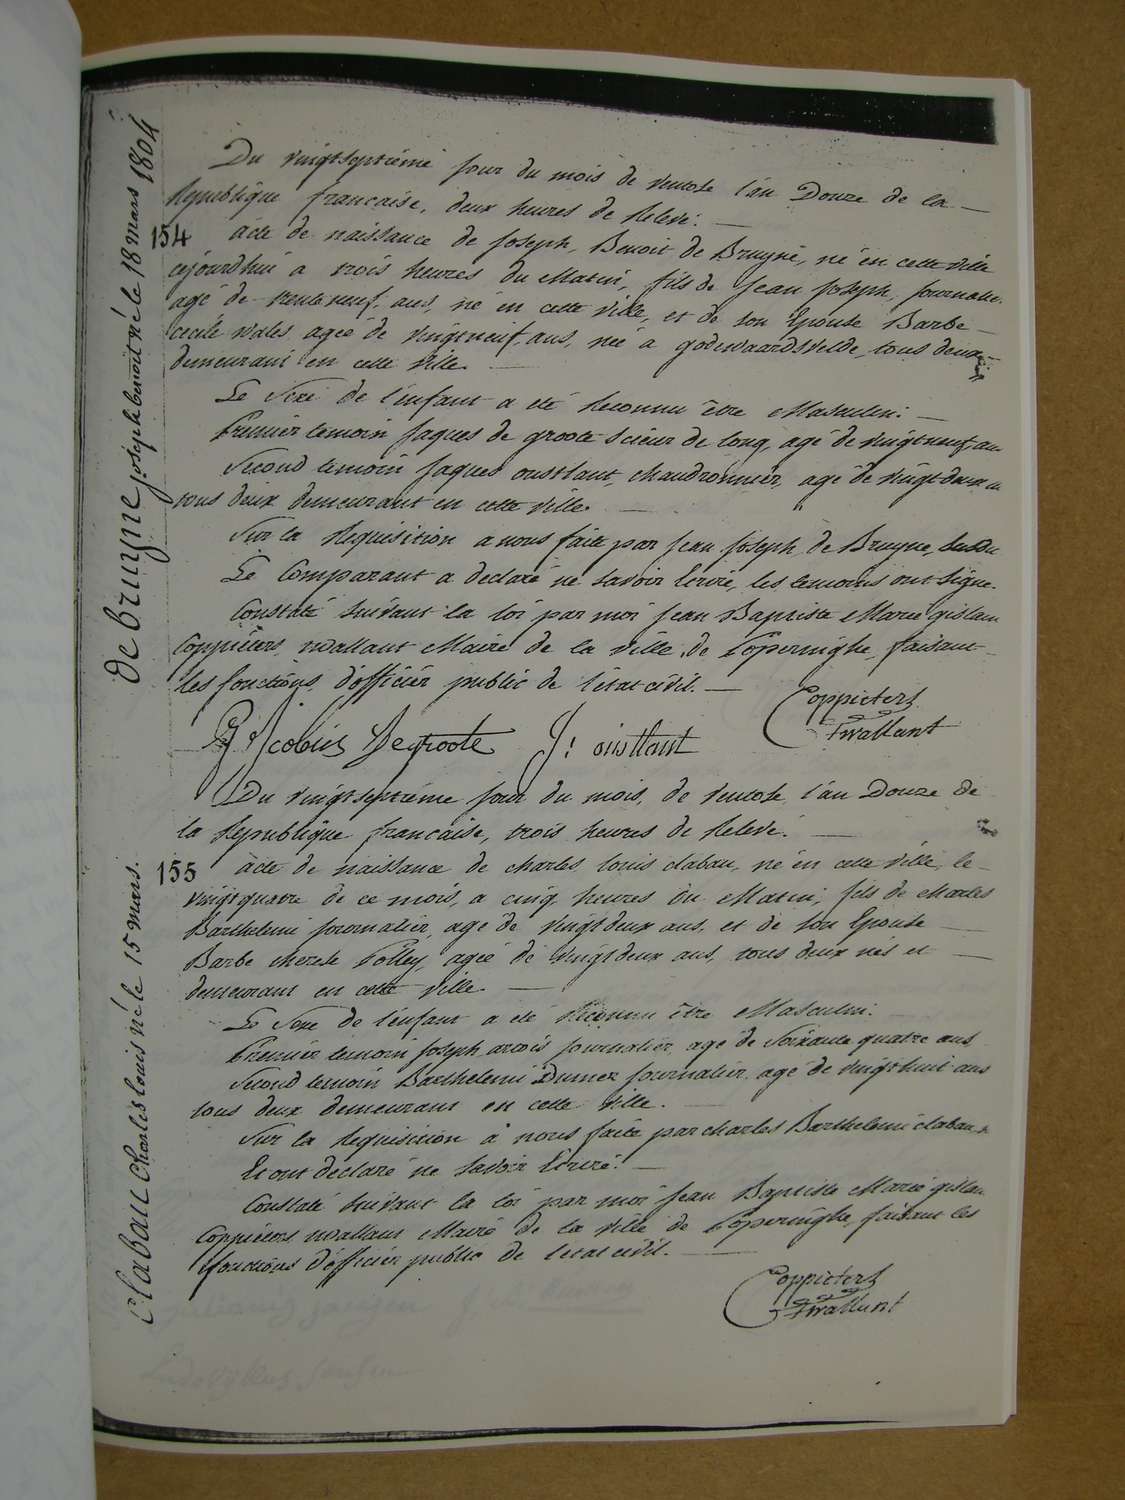 Du vingtseptiéme jour du mois de ventose l'an Douze de la
Republique francaise, deux heures de Relevé.
154
acte de naissance de Joseph, Benoit de Bruyne, né en cette ville
cejourdhui a trois heures du Matin, fils de Jean Joseph, journalier
agé de trente neuf ans, né en cette ville, et de son Epouse Barbe
cecile wales agée de vingtneuf ans, née a godewaardsvelde, tous deux
demeurant en cette ville.
Le Sexe de l'enfant a eté Reconnu être Masculin.
Premier temoin Jaques de groote scieur de long, agé de vingtneuf ans
Second temoin Jaques oustlant, chaudronnier, agé de vingtdeux
tous deux demeurant en cette ville.
Sur la Requisition a nous faite par Jean Joseph de Bruyne susdit
Le Comparant a declaré ne savoir Ecrire, les temoins ont signe.
Constaté suivant la loi par moi Jean Baptiste Marie gislain
Coppieters wallant Maire de la ville de Poperinghe, faisant
les fonctions d'officier public de l'etat civil.
Coppieters
twallant
Jcobus Degroote J: oustlant
de bruyne joseph benoit né le 18 mars 1804
Du vingtseptiéme jour du mois de ventose l'an Douze de
la Republique francaise, trois heures de Relevé.
155
acte de naissance de charles louis clabau, né en cette ville le
vingtquatre de ce mois, a cinq heures du Matin, fils de charles
Barthelemi journalier, agé de vingtdeux ans, et de son Epouse
Barbe therese Folley, agée de vingtdeux ans, tous deux nés et
demeurant en cette ville.
Le Sexe de l'enfant a eté Reconnu être Masculin.
Premier temoin Joseph arcois journalier, agé de Soixante quatre ans
Second temoin Barthelemi Dumez journalier, agé de vingthuit ans
tous deux demeurant en cette ville.
Sur la Requisition à nous faite par charles Barthelemi clabau
Et ont declaré ne savoir Ecrire.
Constaté suivant la loi par moi Jean Baptiste Marie gislain
Coppieters wallant Maire de la ville de Poperinghe, faisant les
fonctions d'officier public de l'etat civil.
Coppieters
twallant
Clabau Charles louis né le 15 mars.